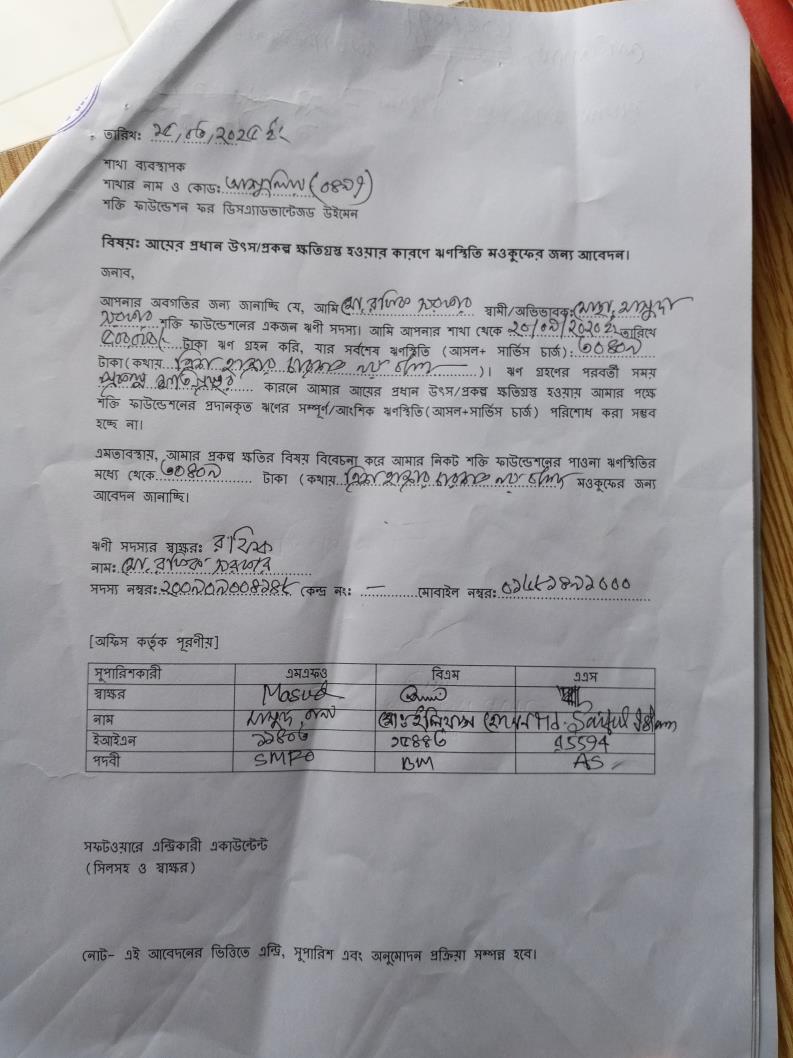 তারিখ: ২৫/০৬/২০২৫ ইং
শাখা ব্যবস্থাপক
শাখার নাম ও কোড: (০৪৯৭)
শক্তি ফাউন্ডেশন ফর ডিসএ্যাডভান্টেজড উইমেন
বিষয়: আয়ের প্রধান উৎস/প্রকল্প ক্ষতিগ্রস্ত হওয়ার কারণে ঋণস্থিতি মওকুফের জন্য আবেদন।
জনাব,
আপনার অবগতির জন্য জানাচ্ছি যে, আমি মো. রফিক সরদার স্বামী/অভিভাবক: মোহা. মাসুদ
সরদার শক্তি ফাউন্ডেশনের একজন ঋণী সদস্য। আমি আপনার শাখা থেকে তারিখে
টাকা ঋণ গ্রহন করি, যার সর্বশেষ ঋণস্থিতি (আসল+ সার্ভিস চার্জ): ৩০৪০৯
টাকা(কথায় ত্রিশ হাজার চারশত নয় টাকা)। ঋণ গ্রহণের পরবর্তী সময়
কারনে আমার আয়ের প্রধান উৎস/প্রকল্প ক্ষতিগ্রস্ত হওয়ায় আমার পক্ষে
শক্তি ফাউন্ডেশনের প্রদানকৃত ঋণের সম্পূর্ণ/আংশিক ঋণস্থিতি(আসল+সার্ভিস চার্জ) পরিশোধ করা সম্ভব
হচ্ছে না।
এমতাবস্থায়, আমার প্রকল্প ক্ষতির বিষয় বিবেচনা করে আমার নিকট শক্তি ফাউন্ডেশনের পাওনা ঋণস্থিতির
মধ্যে থেকে ৩০৪০৯ টাকা (কথায় ত্রিশ হাজার চারশত নয় টাকা) মওকুফের জন্য
আবেদন জানাচ্ছি।
ঋণী সদস্যর স্বাক্ষর: রফিক
নাম: মো. রফিক সরদার
সদস্য নম্বর: কেন্দ্র নং: – মোবাইল নম্বর:
[অফিস কর্তৃক পূরণীয়]
সুপারিশকারী এমএফও বিএম এএস
স্বাক্ষর Masud
নাম মাসুদ রানা মোঃ ইলিয়াস হোসেন Md. Saiful Islam
ইআইএন ১১৪০৬ ১৫৪৪৬ 15594
পদবী SMFO BM AS
সফটওয়ারে এন্ট্রিকারী একাউন্টেন্ট
(সিলসহ ও স্বাক্ষর)
নোট- এই আবেদনের ভিত্তিতে এন্ট্রি, সুপারিশ এবং অনুমোদন প্রক্রিয়া সম্পন্ন হবে।